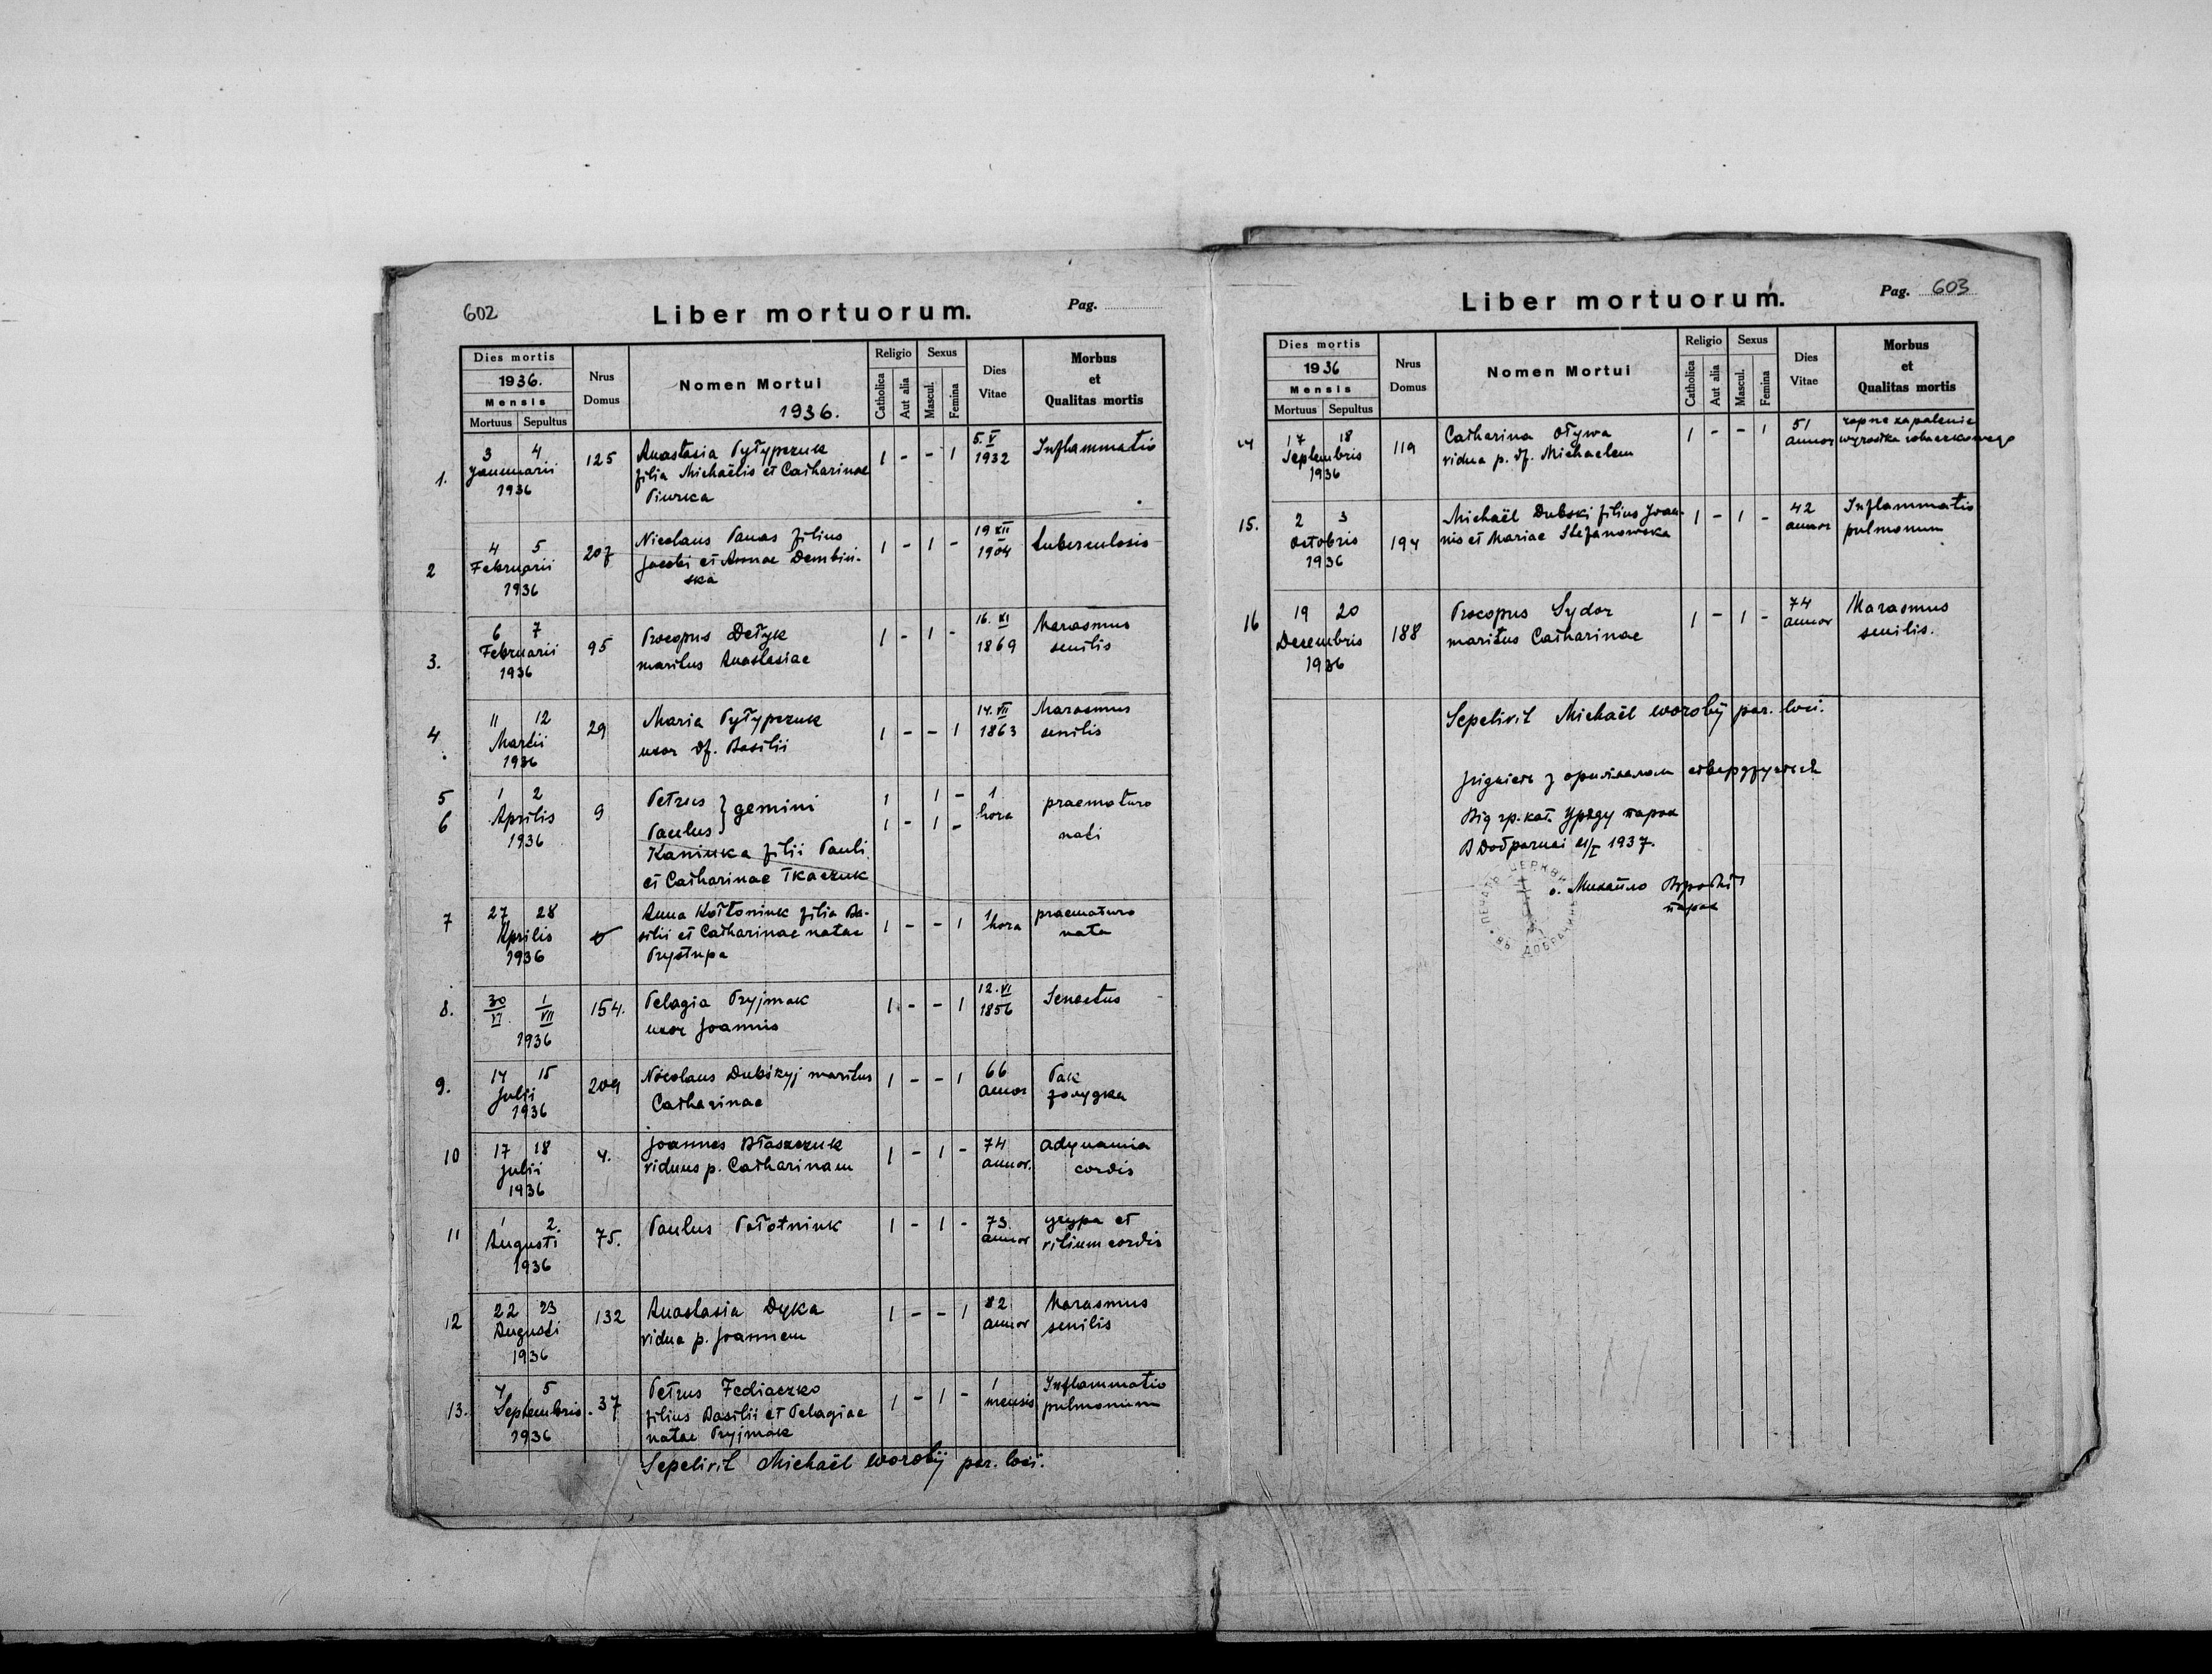 602
Liber mortuorum.
Pag.
Dies mortis
1936.
Mensis
Mortuus Sepultus
Nrus Domus
Nomen Mortui
1936.
Religio
Catholica
Aut alia
Sexus
Mascul.
Femina
Dies Vitae
Morbus
et
Qualitas mortis
1. 3 4 125 Anastasia Pyłypczuk 1 - - 1 5. V Inflammatio
Januarii filia Michaëlis et Catharinae 1932
1936 Piurka
2 4 5 207 Nicolaus Panas filius 1 - 1 - 19 XII tuberculosis
Februarii Jacobi et Annae Dembin- 1904
1936 ska
3. 6 7 95 Procopus Detyk 1 - 1 - 16. XI Marasmus
Februarii maritus Anastasiae 1869 senilis
1936
4 11 12 29 Maria Pyłypczuk 1 - - 1 14. VII Marasmus
Martii uxor df. Basilii 1863 senilis
1936
5 1 2 9 Petrus } gemini 1 1 - 1 praemature
6 Aprilis Paulus 1 - 1 - hora nati
1936 Kaniuka filii Pauli
et Catharinae Tkaczuk
7 27 28 Anna Kołtoniuk filia Ba- 1 - - 1 1 praemature
Aprilis silii et Catharinae natae hora nata
1936 Prystupa
8. 30 1 154. Pelagia Pryjmak 1 - - 1 12. VI Senectus
VI VII uxor Joannis 1856
1936
9. 14 15 209 Nicolaus Dubskyj maritus 1 - - 1 66 Рак
Julii Catharinae annor золудка
1936
10 17 18 4. Joannes Błaszczuk 1 - 1 - 74 adynamia
Julii viduus p. Catharinam annor. cordis
1936
11 1 2. 75. Paulus Połotniuk 1 - 1 - 73 grypa et
Augusti annor vitium cordis
1936
12 22 23 132 Anastasia Dyka 1 - - 1 82 Marasmus
Augusti vidua p. Joannem annor senilis
1936
13. 4 5 37 Petrus Fediaczko 1 - 1 - 1 Inflammatio
Septembris filius Basilii et Pelagiae mensis pulmonum
1936 natae Pryjmak
Sepelivit Michaël Worobij par. loci.
Liber mortuorum.
Pag. 603
Dies mortis
1936
Mensis
Mortuus Sepultus
Nrus Domus
Nomen Mortui
Religio
Catholica
Aut alia
Sexus
Mascul.
Femina
Dies Vitae
Morbus
et
Qualitas mortis
14 17 18 119 Catharina Oływa 1 - - 1 51 ropne zapalenie
Septembris vidua p. df. Michaelem annor wyrostka robaczkowego
1936
15. 2 3 194 Michaël Dubski filius Joan- 1 - 1 - 42 Inflammatio
Octobris nis et Mariae Stefanowska annor pulmonum
1936
16 19 20 188 Procopus Sydor 1 - 1 - 74 Marasmus
Decembris maritus Catharinae annor senilis.
1936
Sepelivit Michaël Worobij par. loci.
Згідність з оригіналом стверджується
Від гр. кат. Уряду парох
В Добрачині 1937.
ПЕЧАТЬ ЦЕРКВИ ВЪ ДОБРАЧИНѢ
о. Михайло Воробій
парох